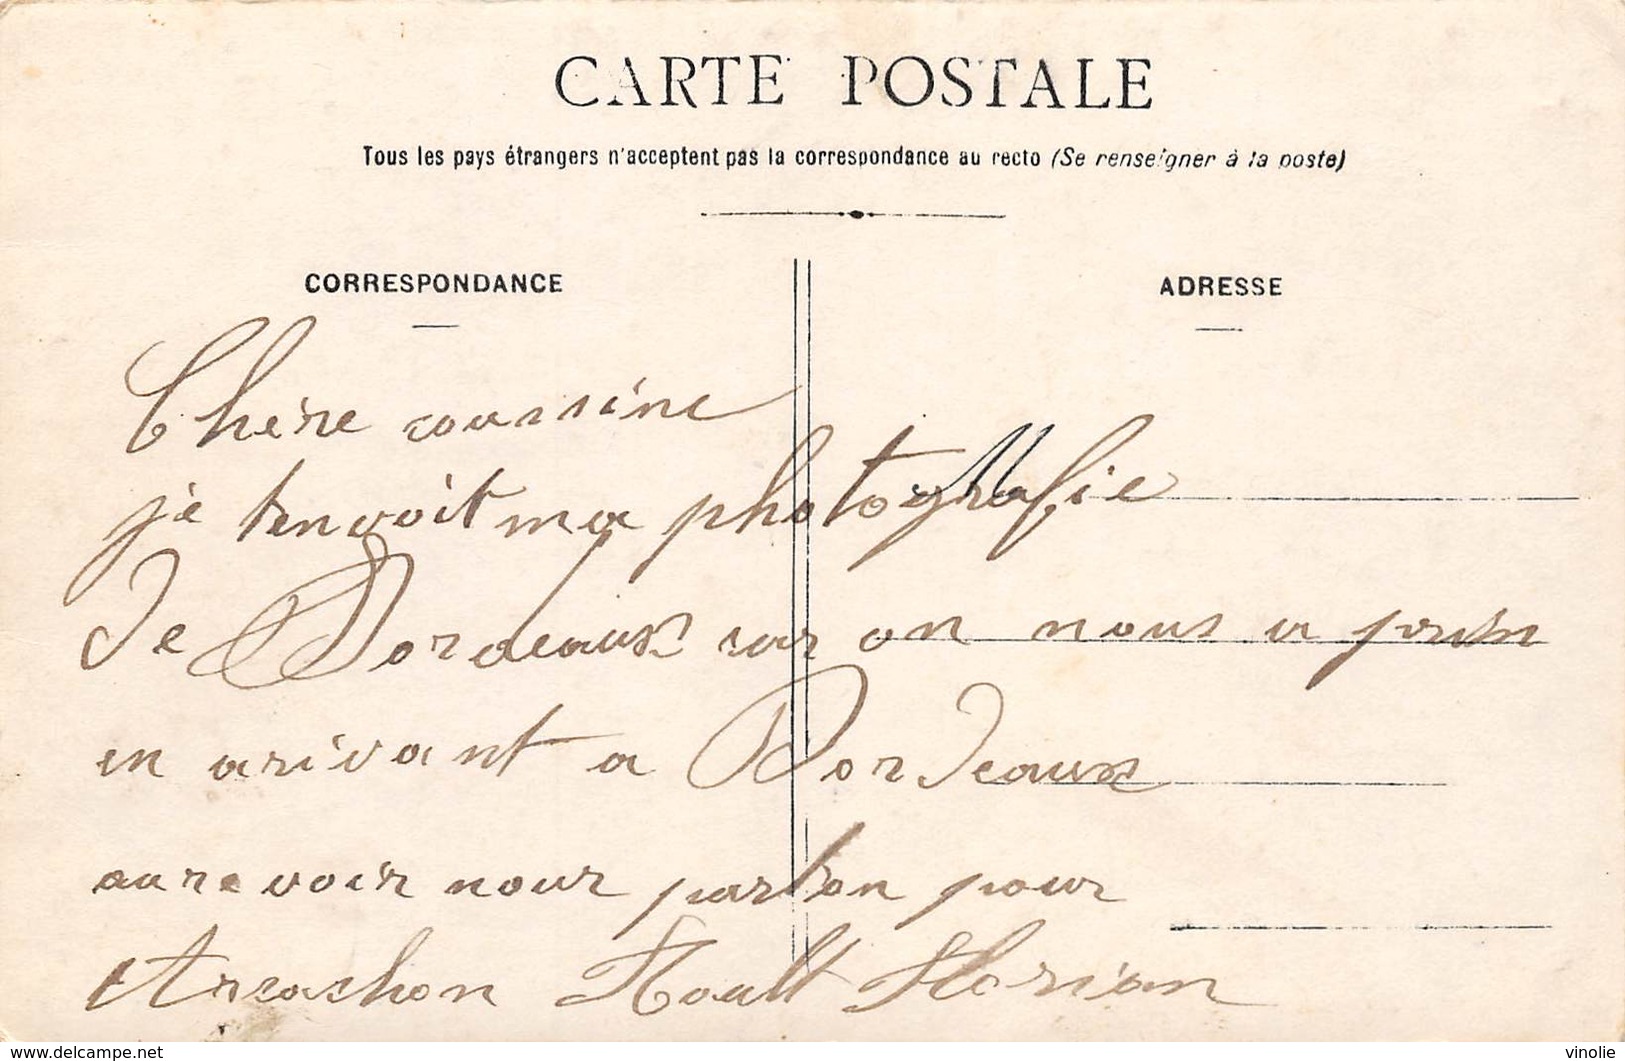 CARTE POSTALE
Tous les pays étrangers n'acceptent pas la correspondance au recto (Se renseigner à la poste)
CORRESPONDANCE
ADRESSE
Chère coussine
je tenvoit ma photografie
de Bordeaux car on nous a
en arivant a Bordeaux
au revoir nour parton pour
Arcachon Florian
delcampe.net
vinolie